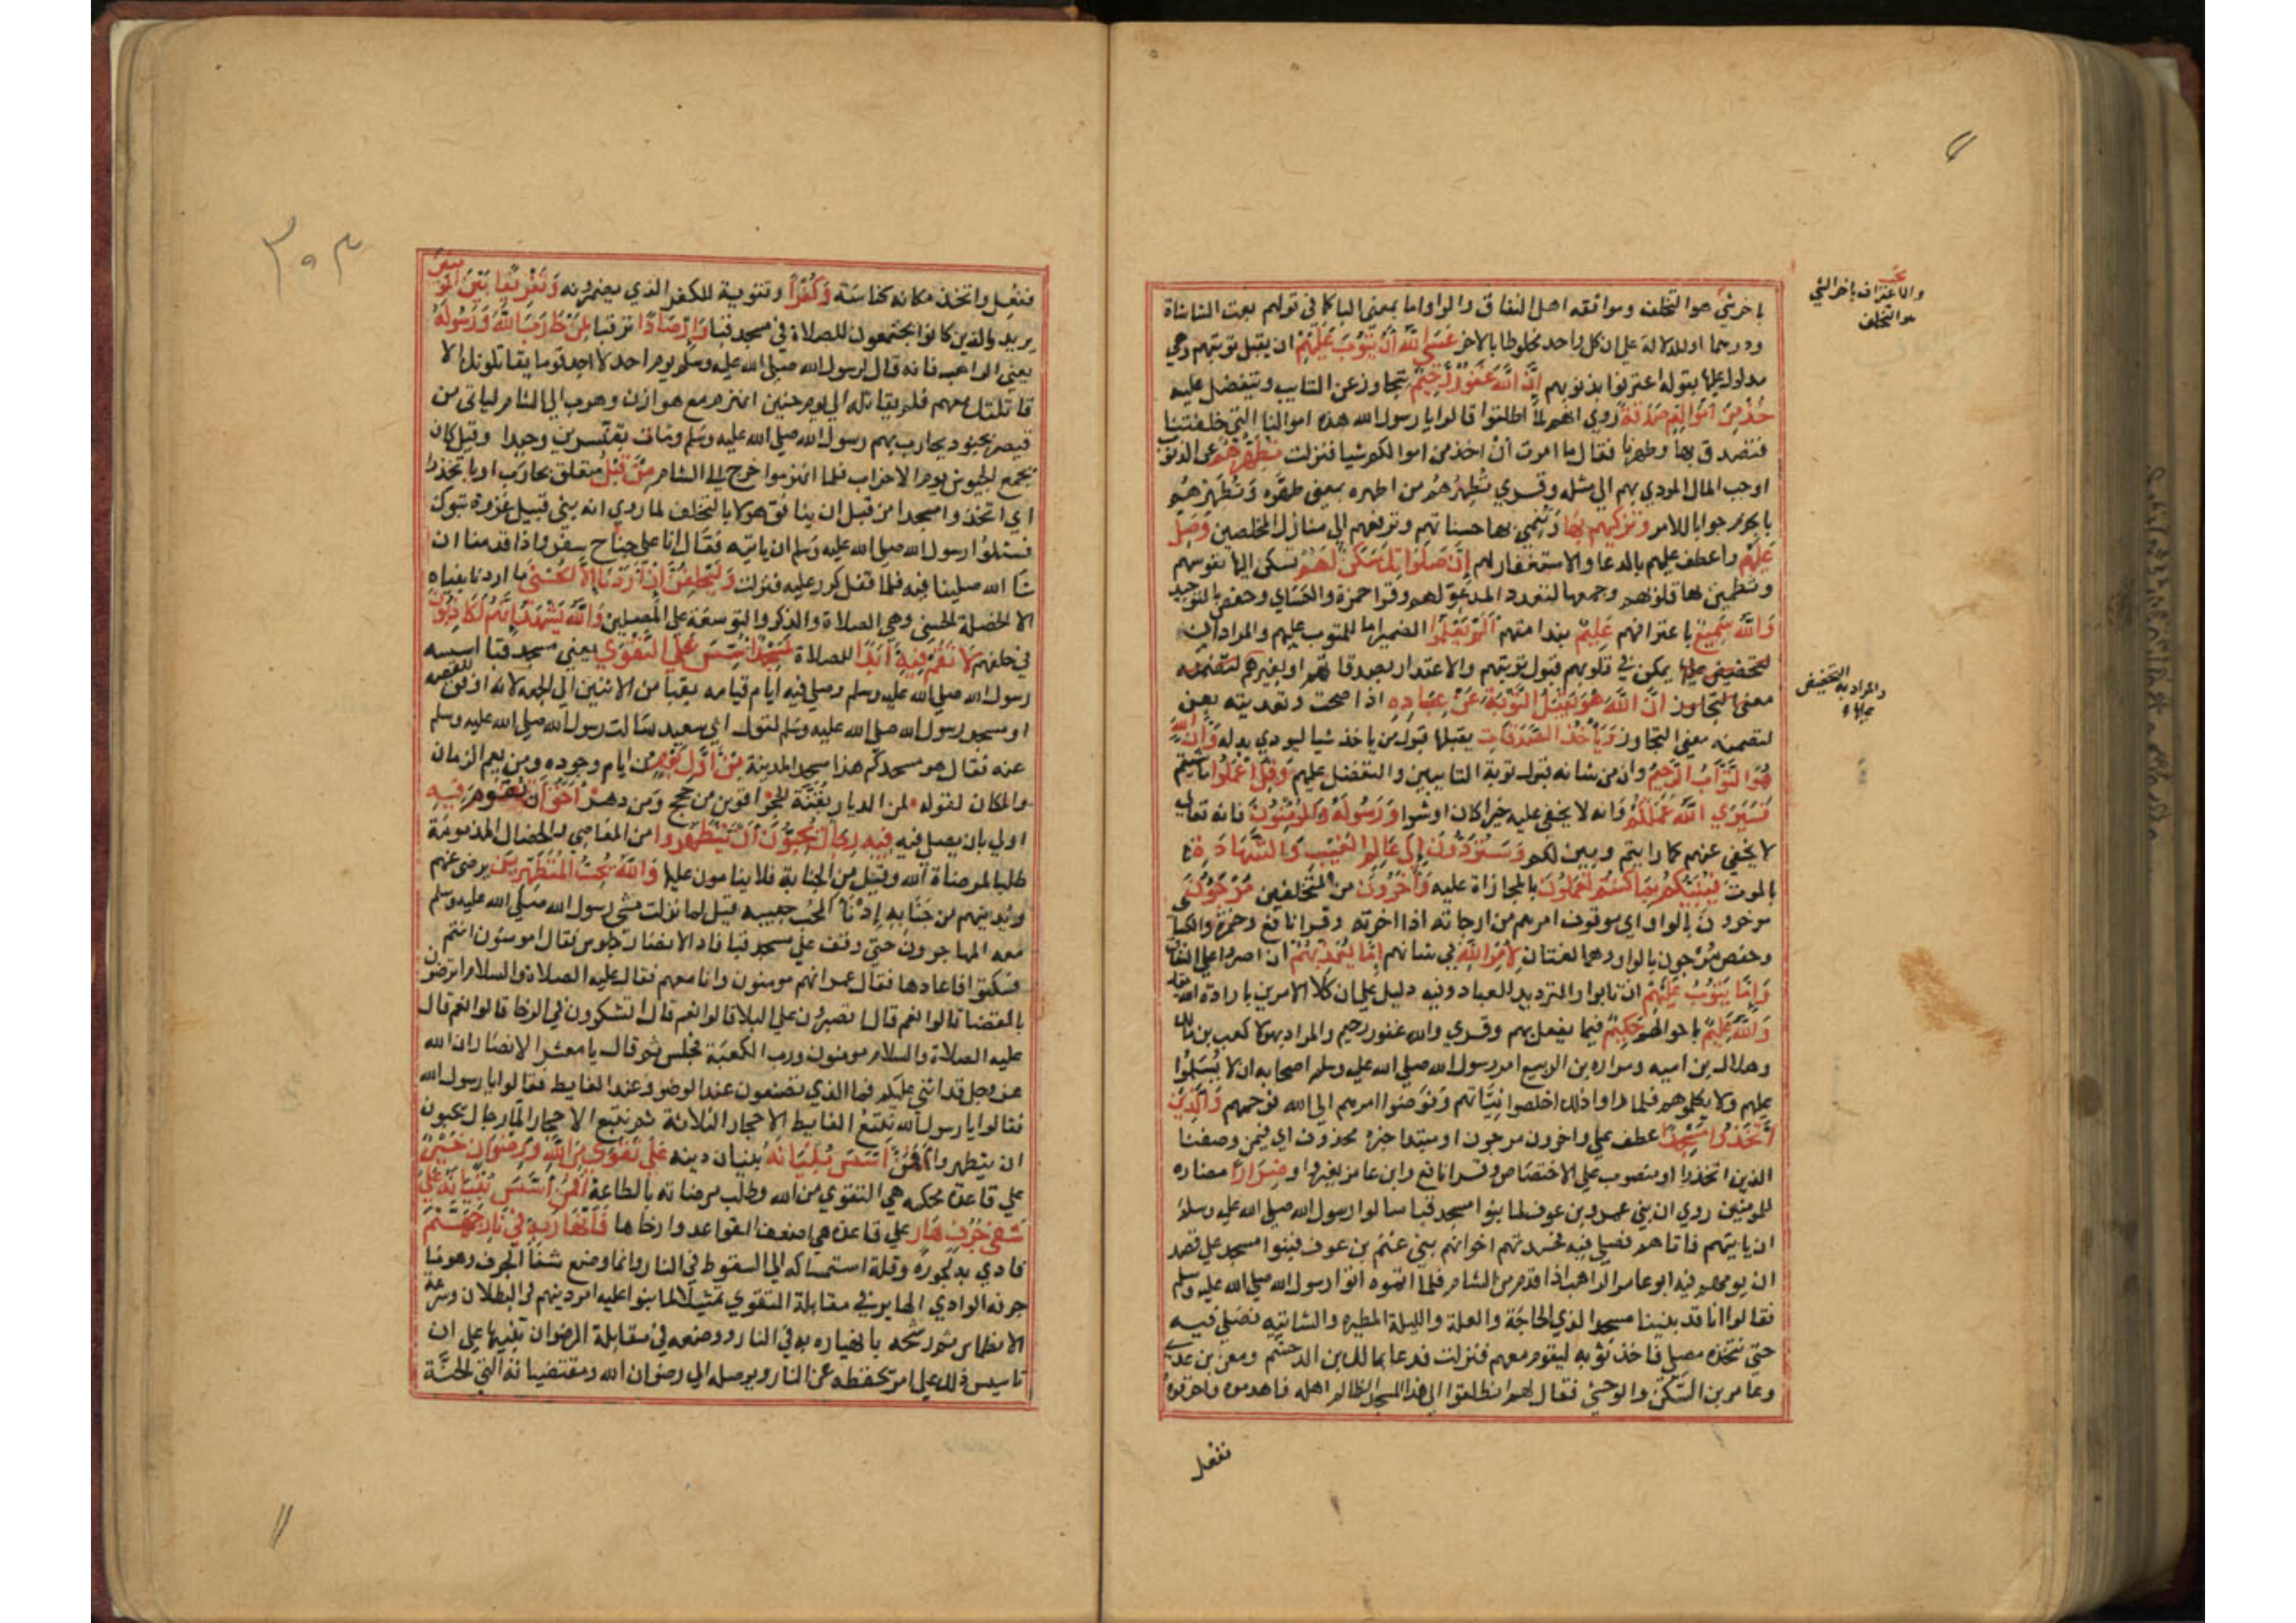 باخر شيء هو التخلف وموافقه اهل النفاق والواو اما بمعنى الباء كما في قولهم بعت الشا شاة
ودرهما او للدلالة على ان كل واحد مخلوط بالاخر عَسَى اللَّهُ أَنْ يَتُوبَ عَلَيْهِمْ ان يقبل توبتهم وهي
مدلول عليها بقوله اعترفوا بذنوبهم إِنَّ اللَّهَ غَفُورٌ رَحِيمٌ يتجاوز عن التايب ويتفضل عليه
خُذْ مِنْ أَمْوَالِهِمْ صَدَقَةً روي انهم لما اطلقوا قالوا يا رسول الله هذه اموالنا التي خلفتنا
فتصدق بها وطهرنا فقال ما امرت أن اخذ من اموالكم شيا فنزلت تُطَهِّرُهُمْ عن الذنوب
او حب المال المودي بهم الى مثله وقري تُطْهِرُهُمْ من اطهره بمعنى طهّره وتُطَهِّرْهُم
بالجزم جوابا للامر وَتُزَكِّيهِمْ بِهَا وتنمي بها حسناتهم وترفعهم الى منازل المخلصين وَصَلِّ
عَلَيْهِمْ واعطف عليهم بالدعا والاستغفار لهم إِنَّ صَلَوَاتِكَ سَكَنٌ لَهُمْ تسكن اليها نفوسهم
وتطمين بها قلوبهم وجمعها لتعدد المدعوّ لهم وقرا حمزة والكسائي وحفص بالتوحيد
وَاللَّهُ سَمِيعٌ باعترافهم عَلِيمٌ بندامتهم أَلَمْ يَعْلَمُوا الضمير اما للمتوب عليهم والمراد ان
يمكن في قلوبهم قبول توبتهم والاعتداد بصدقاتهم او لغيرهم
معنى التجاوز أَنَّ اللَّهَ هُوَ يَقْبَلُ التَّوْبَةَ عَنْ عِبَادِهِ اذا صحت وتعديته بعن
لتضمنه معنى التجاوز وَيَأْخُذُ الصَّدَقَاتِ يقبلها قبول من ياخذ شيا ليودي بدله وَأَنَّ اللَّهَ
هُوَ التَّوَّابُ الرَّحِيمُ وان من شانه قبول توبة التايبين والتفضل عليهم وَقُلِ اعْمَلُوا ما شيتم
فَسَيَرَى اللَّهُ عَمَلَكُمْ فانه لا يخفى عليه خيرا كان او شرا وَرَسُولُهُ وَالْمُؤْمِنُونَ فانه تعالى
لا يخفي عنهم كما رايتم وتبين لكم وَسَتُرَدُّونَ إِلَى عَالِمِ الْغَيْبِ وَالشَّهَادَةِ
بالموت فَيُنَبِّئُكُمْ بِمَا كُنْتُمْ تَعْمَلُونَ بالمجازاة عليه وَآخَرُونَ من المتخلفين مُرْجَوْنَ
موخرون اي موقوف امرهم من ارجاته اذا اخرته وقرا نافع وحمزة والكسا
وحفص مُرْجون بالواو وهما لغتان لِأَمْرِ اللَّهِ في شانهم إِمَّا يُعَذِّبُهُمْ ان اصروا على النفاق
وَإِمَّا يَتُوبُ عَلَيْهِمْ ان تابوا والترديد للعباد وفيه دليل على ان كلا الامرين بارادة الله
وَاللَّهُ عَلِيمٌ باحوالهم حَكِيمٌ فيما يفعل بهم وقري والله غفور رحيم والمراد بهولا كعب بن مالك
وهلال بن اميه ومراره بن الربيع امر رسول الله صلى الله عليه وسلم اصحابه ان لا يُسلّموا
عليهم ولا يكلموهم فلما راوا ذلك اخلصوا نيّاتهم وفوضوا امرهم الى الله فرحمهم وَالَّذِينَ
اتَّخَذُوا مَسْجِدًا عطف على واخرون مرجون او مبتدا خبره محذوف اي فيمن وصفنا
الذين اتخذوا او منصوب على الاختصاص وقرا نافع وابن عامر بغير واو ضِرَارًا مضاره
للمومنين روي ان بني عمرو بن عوف لما بنوا مسجد قبا سالوا رسول الله صلى الله عليه وسلم
ان ياتيهم فاتاهم فصلي فيه فحسدتهم اخوانهم بني غنم بن عوف فبنوا مسجدا على قصد
ان يومهم فيه ابو عامر الراهب اذا قدم من الشام فلما اتموه اتوا رسول الله صلى الله عليه وسلم
فقالوا انا قد بنينا مسجدا لذي الحاجة والعلة والليلة المطيره والشاتيه فصلي فيه
حتى نتخذه مصلى فاخذ ثوبه ليقوم معهم فنزلت فدعا بمالك بن الدخشم ومعن بن عدي
وعامر بن السكن والوحشي فقال لهم انطلقوا الى هذا المسجد الظالم اهله فاهدموه واحرقوه
ففعل
والاعتراف باخر الشي
هو التخلف
والمراد به التخضيض
عليها
٣٠٣
ففعل واتخذ مكانه كناسة وَكُفْرًا وتقوية للكفر الذي يضمرونه وَتَفْرِيقًا بَيْنَ الْمُؤْمِنِينَ
يريد والذين كانوا يجتمعون للصلاة في مسجد قبا وَإِرْصَادًا ترقبا لِمَنْ حَارَبَ اللَّهَ وَرَسُولَهُ
يعني الراهب فانه قال لرسول الله صلى الله عليه وسلم يوم احد لا اجد قوما يقاتلونك الا
قاتلتك معهم فلم يقاتله الى يوم حنين انهزم مع هوازن وهرب الى الشام لياتي من
قيصر بجنود يحارب بهم رسول الله صلى الله عليه وسلم ومات بقنسرين وحيدا وقيل كان
يجمع الجيوش يوم الاحزاب فلما انهزموا خرج الى الشام مِنْ قَبْلُ متعلق بحارب او باتخذوا
اي اتخذوا مسجدا من قبل ان ينافق هولا بالتخلف لما روي انه بني قبيل غزوة تبوك
فسئلوا رسول الله صلى الله عليه وسلم ان ياتيه فقال انا على جناح سفر واذا قدمنا ان
شا الله صلينا فيه فلما قفل كرر عليه فنزلت وَلَيَحْلِفُنَّ إِنْ أَرَدْنَا إِلَّا الْحُسْنَى ما اردنا ببنياه
الا الخصلة الحسنى وهي الصلاة والذكر والتوسعة على المصلين وَاللَّهُ يَشْهَدُ إِنَّهُمْ لَكَاذِبُونَ
في حلفهم لَا تَقُمْ فِيهِ أَبَدًا للصلاة لَمَسْجِدٌ أُسِّسَ عَلَى التَّقْوَى يعني مسجد قبا اسسه
رسول الله صلى الله عليه وسلم وصلى فيه ايام قيامه بقبا من الاثنين الى الجمعه لانه اوفق للقصه
او مسجد رسول الله صلى الله عليه وسلم لقول ابي سعيد سالت رسول الله صلى الله عليه وسلم
عنه فقال هو مسجدكم هذا مسجد المدينة مِنْ أَوَّلِ يَوْمٍ من ايام وجوده ومن يعم الزمان
والمكان لقوله لمن الديار بقنة الحجر اقوين من حجج ومن دهر أَحَقُّ أَنْ تَقُومَ فِيهِ
اولى بان يصلى فيه فِيهِ رِجَالٌ يُحِبُّونَ أَنْ يَتَطَهَّرُوا من المعاصي والخصال المذمومة
طلبا لمرضاة الله وقيل من الجنابة فلا ينامون عليها وَاللَّهُ يُحِبُّ الْمُطَّهِّرِينَ يرضى عنهم
ويدنيهم من جنابه إدناء المحب حبيبه قيل لما نزلت مشى رسول الله صلى الله عليه وسلم
معه المهاجرون حتى وقف على مسجد قبا فاذا الانصار جلوس فقال امومنون انتم
فسكتوا فاعادها فقال عمر انهم مومنون وانا معهم فقال عليه الصلاة والسلام اترضون
بالقضا قالوا نعم قال اتصبرون على البلا قالوا نعم قال اتشكرون في الرخا قالوا نعم قال
عليه الصلاة والسلام مومنون ورب الكعبة فجلس ثم قال يا معشر الانصار ان الله
عز وجل قد اثنى عليكم فما الذي تصنعون عند الوضو وعند الغايط فقالوا يا رسول الله
فقالوا يا رسول الله نتبع الغايط الاحجار الثلاثة ثم نتبع الاحجار الما رجال يحبون
ان يتطهروا أَفَمَنْ أَسَّسَ بُنْيَانَهُ بنيان دينه عَلَى تَقْوَى مِنَ اللَّهِ وَرِضْوَانٍ خَيْرٌ
على قاعدة محكمه هي التقوى من الله وطلب مرضاته بالطاعة أَمْ مَنْ أَسَّسَ بُنْيَانَهُ عَلَى
شَفَا جُرُفٍ هَارٍ على قاعدة هي اضعف القواعد وارخاها فَانْهَارَ بِهِ فِي نَارِ جَهَنَّمَ
فادي به لخوره وقلة استمساكه الى السقوط في النار وانما وضع شفا الجرف وهو ما
جرفه الوادي الهاير في مقابلة التقوى تمثيلا لما بنوا عليه امر دينهم في البطلان وسرعة
الانطماس ثم رشحه بانهياره به في النار ووضعه في مقابلة الرضوان تنبيها على ان
تاسيس ذلك على امر تحفظه عن النار ويوصله الى رضوان الله ومقتضياته التي الجنة